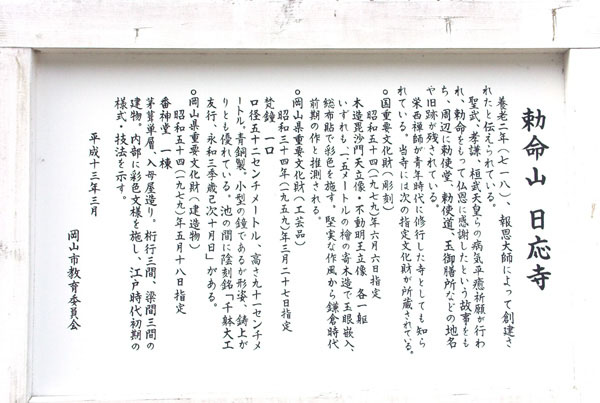 勅命山 日応寺
養老二年（七一八）、報恩大師によって創建さ
れたと伝えられている。
聖武、孝謙、桓武天皇らの病気平癒祈願が行わ
れ、勅命をもって仏恩に感謝したという故事をも
ち、周辺に勅使堂、勅使道、玉御膳所などの地名
や旧跡が残されている。
栄西禅師が青年時代に修行した寺としても知ら
れている。当寺には次の指定文化財が所蔵されている。
○国重要文化財（彫刻）
昭和五十四（一九七九）年六月六日指定
木造毘沙門天立像・不動明王立像 各一躯
いずれも一・五メートルの檜の寄木造で玉眼嵌入、
総布貼で彩色を施す。堅実な作風から鎌倉時代
前期の作と推測される。
○岡山県重要文化財（工芸品）
昭和三十四年（一九五九）年三月二十七日指定
梵鐘 一口
口径五十二センチメートル、高さ九十一センチメ
ートル。青銅製、小型の鐘であるが形姿、鋳上が
りとも優れている。池の間に陰刻銘「千躰大工
友行、永和三季歳己次十月日」がある。
○岡山県重要文化財（建造物）
昭和五十四（一九七九）年五月十八日指定
番神堂 一棟
茅葺単層、入母屋造り。桁行三間、梁間三間の
建物。内部に彩色文様を施し、江戸時代初期の
様式・技法を示す。
平成十三年三月
岡山市教育委員会